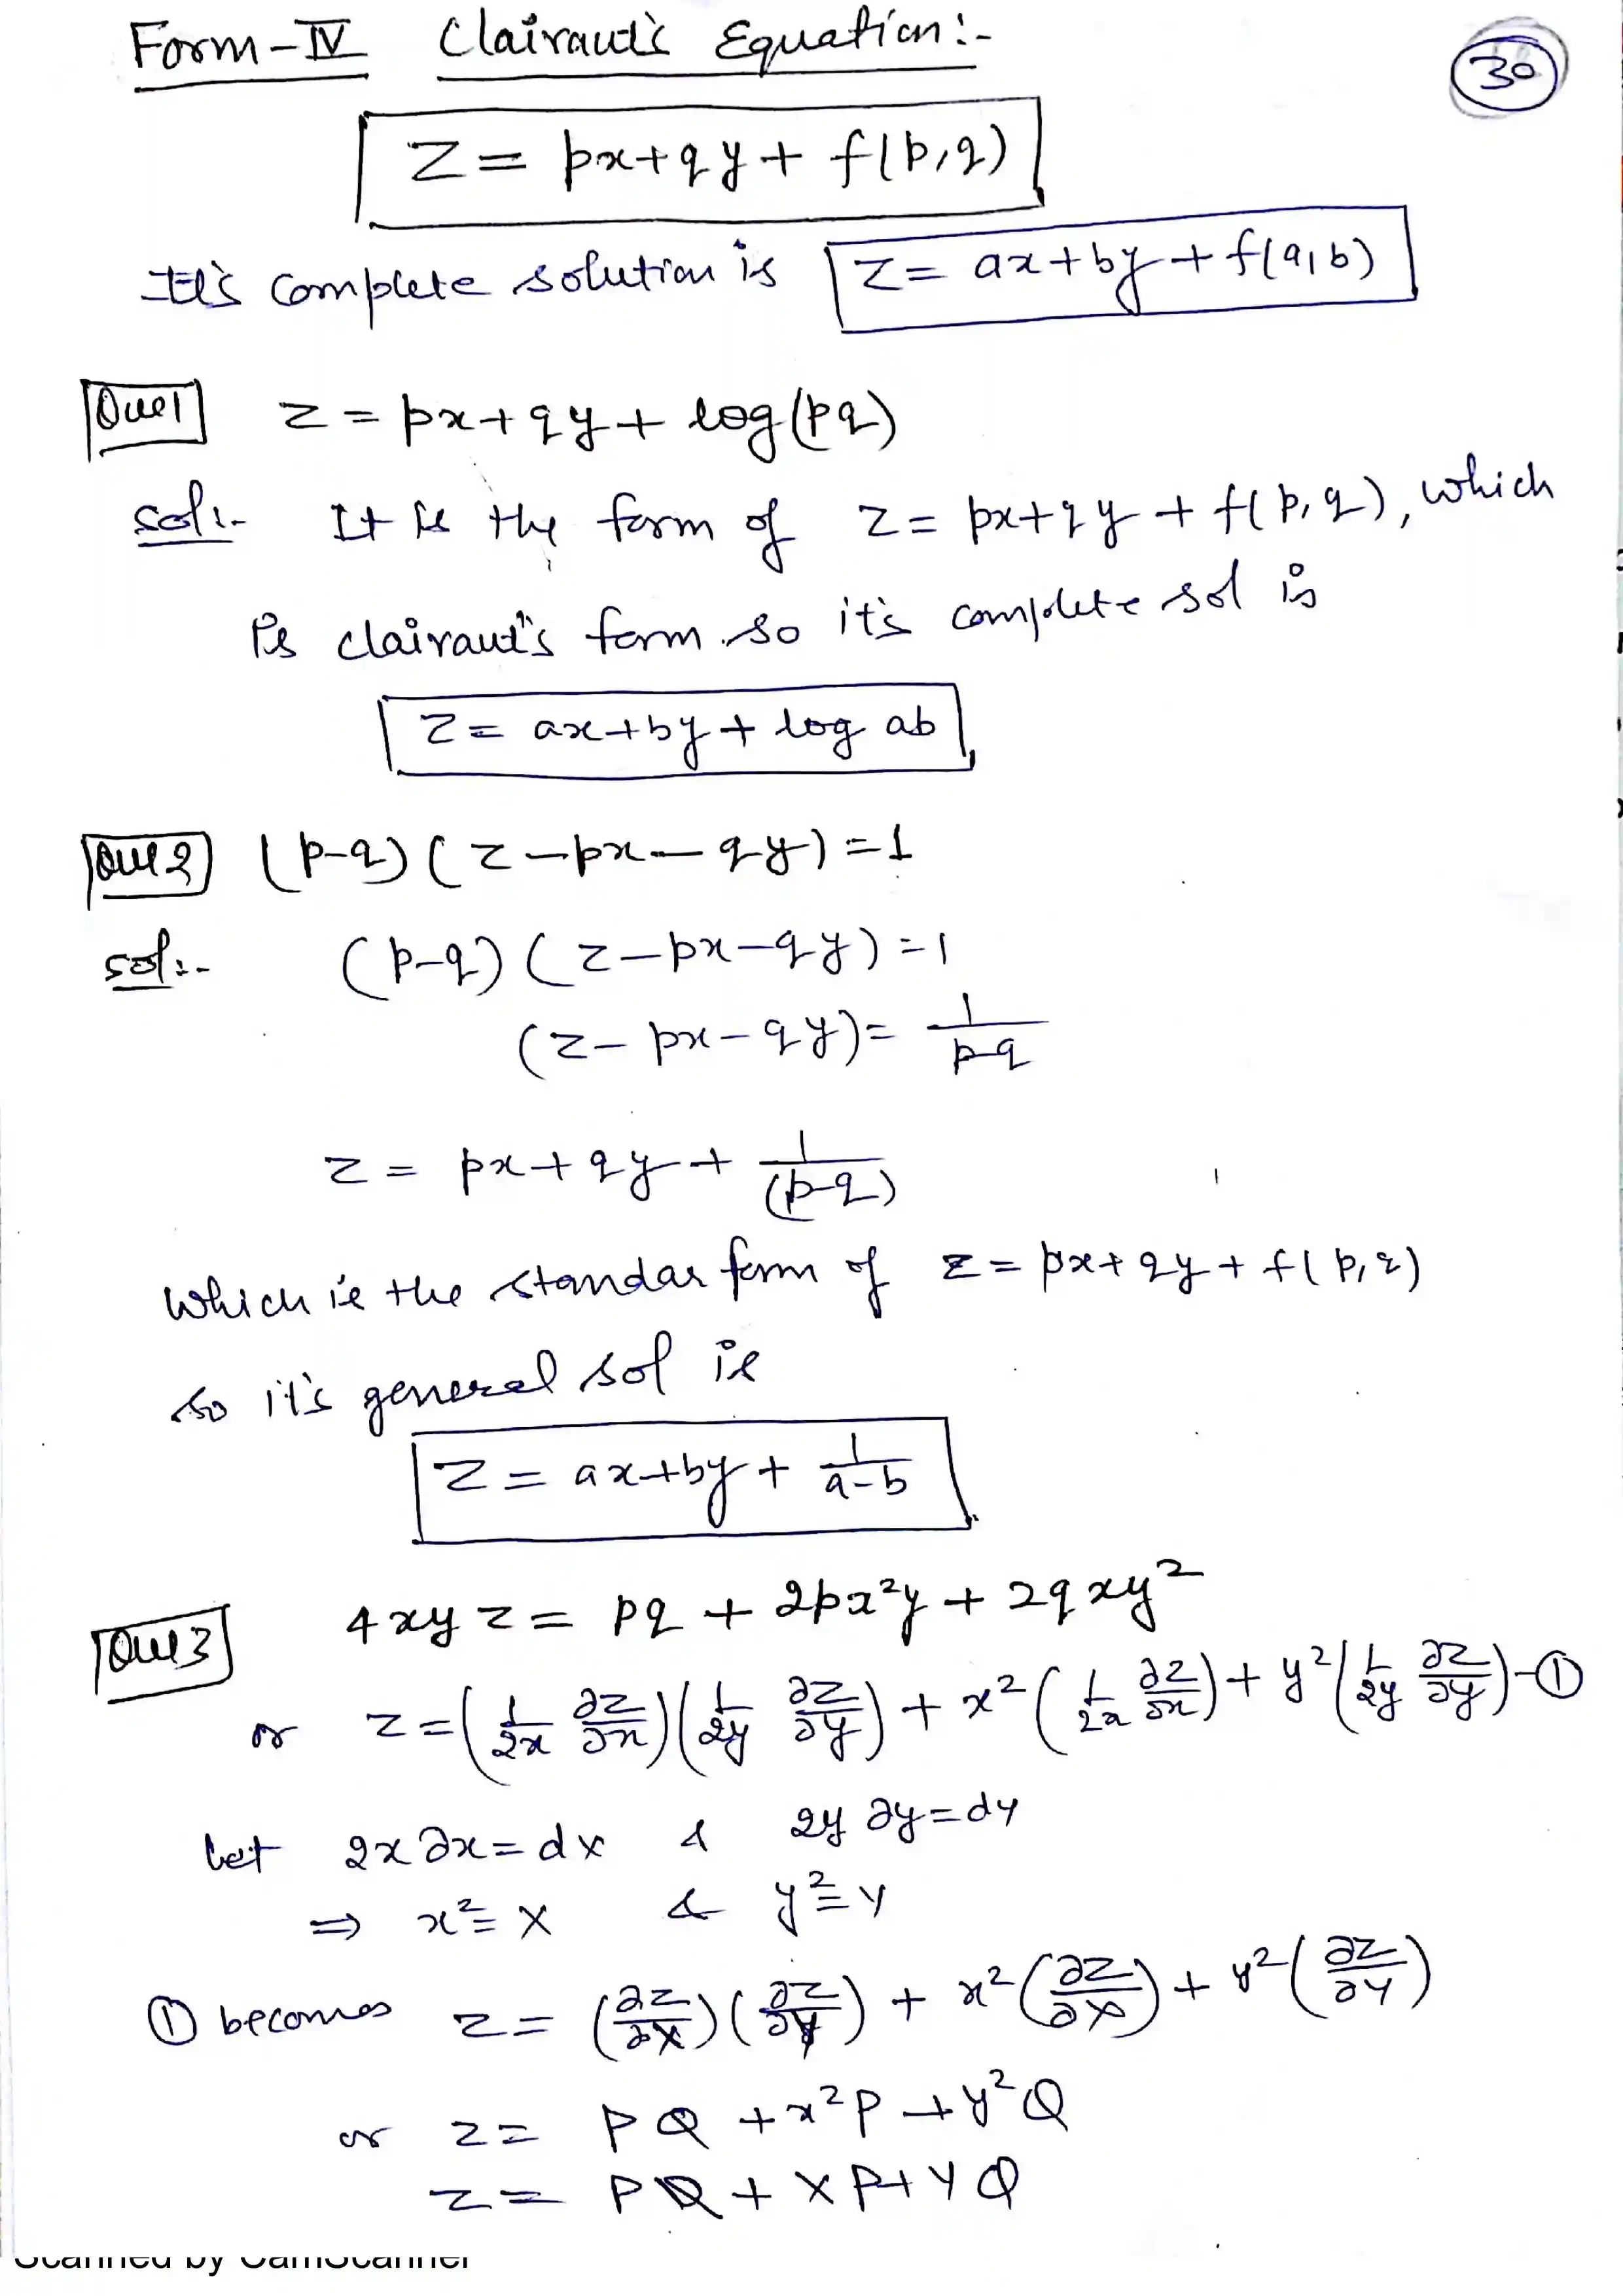 Form-IV Clairaut's Equation:-
30
Z = px+qy+ f(p,q)
It's complete solution is Z = ax+by+f(a,b)
Que1 z = px+qy+ log(pq)
Sol:- It is the form of z = px+qy+f(p,q), which
is clairaut's form. so it's complete sol is
z = ax+by+ log ab
Que2 (p-q)(z-px-qy)=1
Sol:- (p-q)(z-px-qy)=1
(z-px-qy)= 1/p-q
z = px+qy+ 1/(p-q)
which is the standar form of z = px+qy+f(p,q)
so it's general sol is
z = ax+by+ 1/a-b
Que3 4xyz = pq + 2px²y + 2qxy²
or z=(1/2x ∂z/∂x)(1/2y ∂z/∂y) + x²(1/2x ∂z/∂x)+ y²(1/2y ∂z/∂y)-①
Let 2x∂x=dX & 2y∂y=dY
⇒ x²=X & y²=Y
① becomes z = (∂z/∂X)(∂z/∂Y) + x²(∂z/∂X) + y²(∂z/∂Y)
or z= PQ +x²P+y²Q
z= PQ + XP+YQ
Scanned by CamScanner